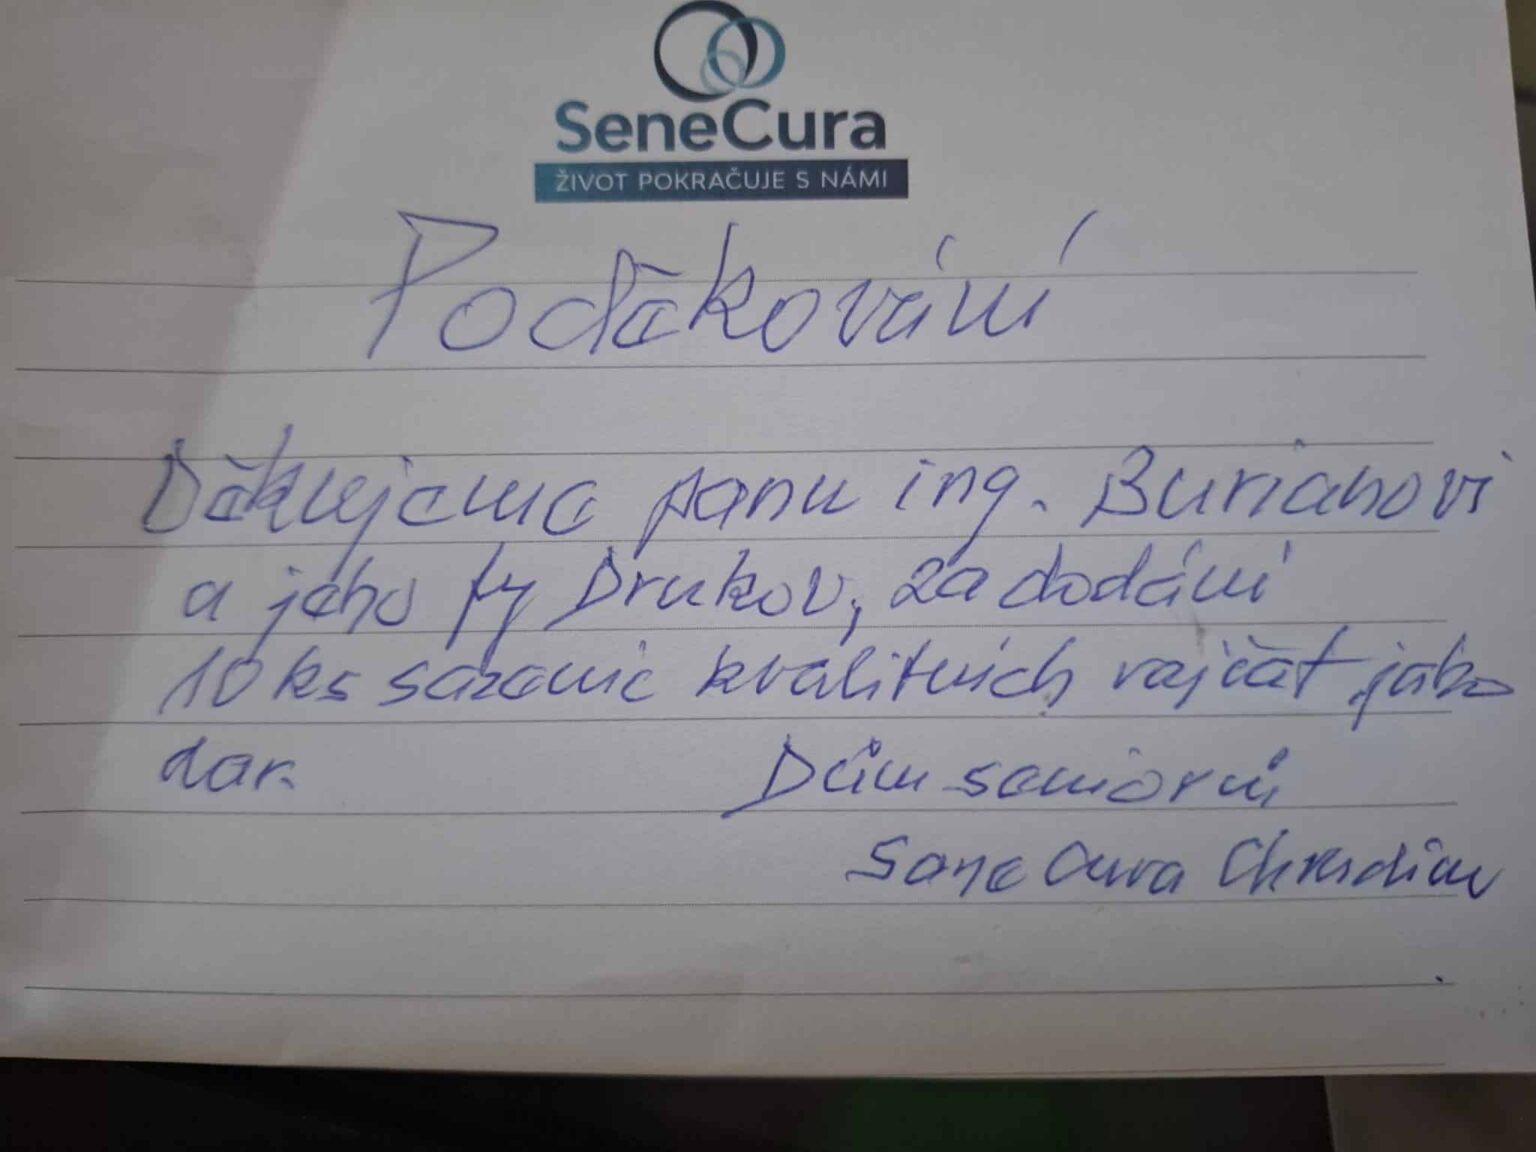 SeneCura
ŽIVOT POKRAČUJE S NÁMI
Poděkování
Děkujeme panu ing. Burianovi
a jeho fy Drukov, za dodání
10 ks sazenic kvalitních rajčat jako
dar.
Dům seniorů
SeneCura Chrudim